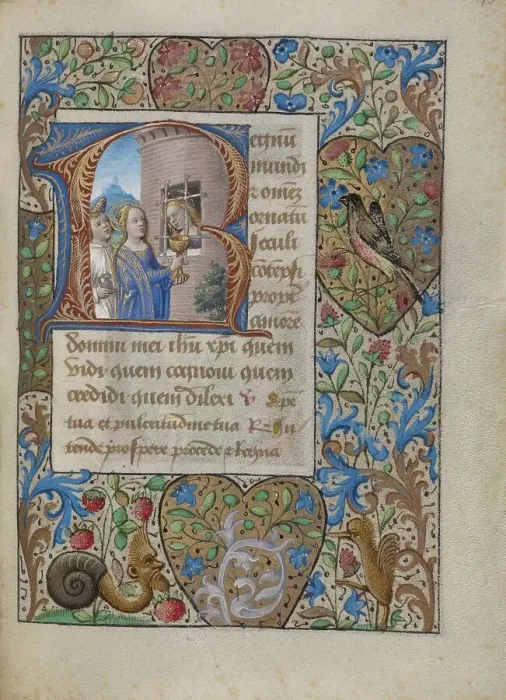 Regnū
mundi
et omēz
ornatū
seculi
cōtēpsi
propt̄
amorē
domini mei ihū xpi quem
vidi quem cognoui quem
credidi quem dilexi V Spe
tua et pulcritudine tua R In
tende prospere procede et regna